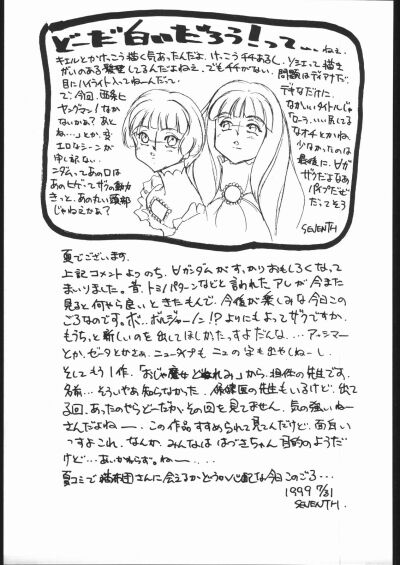 どーだ 白いだろう！って… ねぇ
キエルとかけっこう描く気あったんだよ、けっこうチチあるし、ソシエって描き
がいのある髪型してるんだよねえ、でもチチがない。問題はディアナだ、
目にハイライト入ってねーんだって。
デキなだけに、
で、今回、西条ヒ
ヤングマン！なか
ないかぁ？ あと
ね…」とか、変
エロなシーンが
申し訳ない、
なオチとかね、
少なかったのは
最後に、∀ガ
ニダムってあのロは
あのヒゲってザクの動力
きっと、あの丸い頭部
じゃねえかぁ？
SEVENTH
夏でございます。
上記コメントよりのち、∀ガンダムがすっかりおもしろくなって
まいりました。昔、トミノパターンなどと言われたアレが今また
見ると何やら良いときたもんで、今後が楽しみな今日この
ごろなのです。ボ、ボルジャーノン！？よりにもよってザクですか、
もうちっと新しいのを出してほしかったっすよだんな、...アッシマー
とか、ゼータとかさぁ、ニュータイプもニュの字も出やしねーし。
そしてもう1作、「おじゃ魔女どれみ」から、担任の先生です。
名前…そういやあ知らなかった、保健医の先生もいるけど、出て
る回、あったのやらどーだか、その回を見てません、気の強いねー
さんだよねー。この作品すすめられて見てんだけど、面白い
っすよこれ。なんか、みんなははづきちゃん目的のようだ
けど…あいかわらず。ねー…
夏コミで
さんに会えるかどうか心配な今日このごろ…
1999 7/31
SEVENTH.